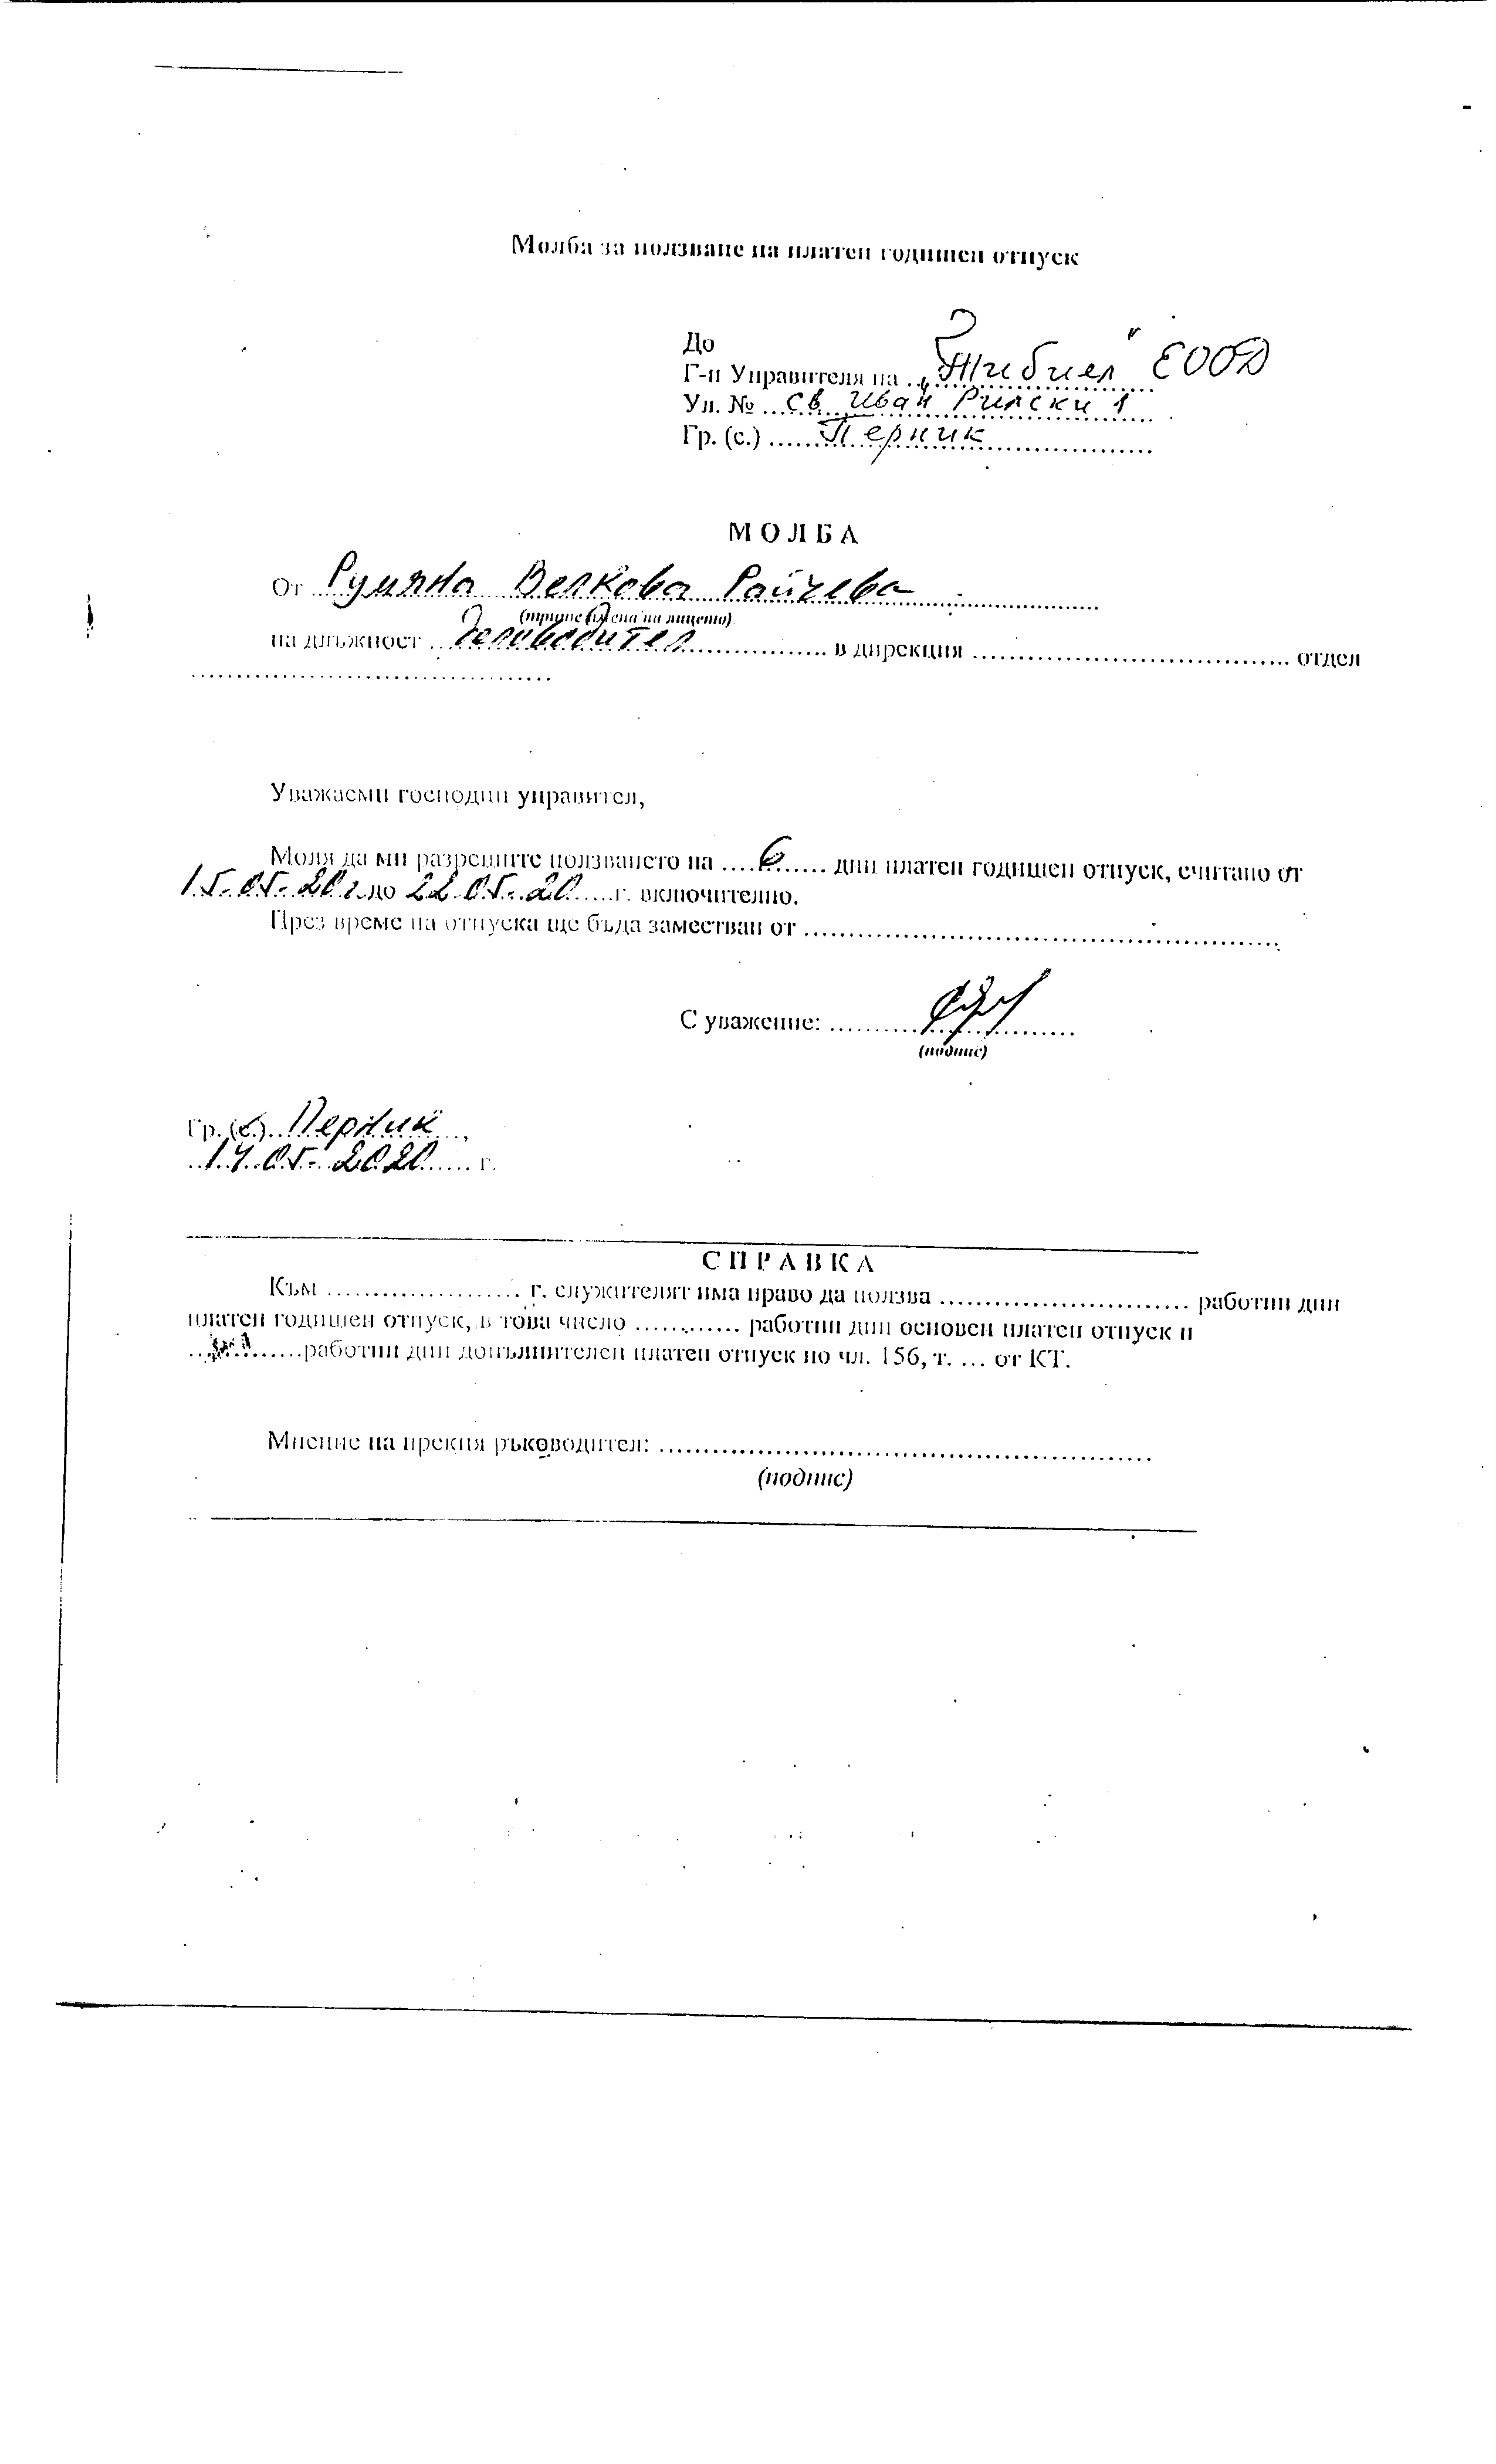 Молба за ползване на платен годишен отпуск
До
Г-н Управителя на „Тибиел“ ЕООД
Ул. № Св. Иван Рилски 1
Гр. (с.) Перник
МОЛБА
От Румяна Велкова Райчева
(трите имена на лицето)
на длъжност деловодител в дирекция отдел
Уважаеми господин управител,
Моля да ми разрешите ползването на 6 дни платен годишен отпуск, считано от
15.05.20 г. до 22.05.20 г. включително.
През време на отпуска ще бъда заместван от
С уважение:
(подпис)
Гр. (с.) Перник
14.05.2020 г.
СПРАВКА
Към г. служителят има право да ползва работни дни
платен годишен отпуск, в това число работни дни основен платен отпуск и
работни дни допълнителен платен отпуск по чл. 156, т. ... от КТ.
Мнение на прекия ръководител:
(подпис)